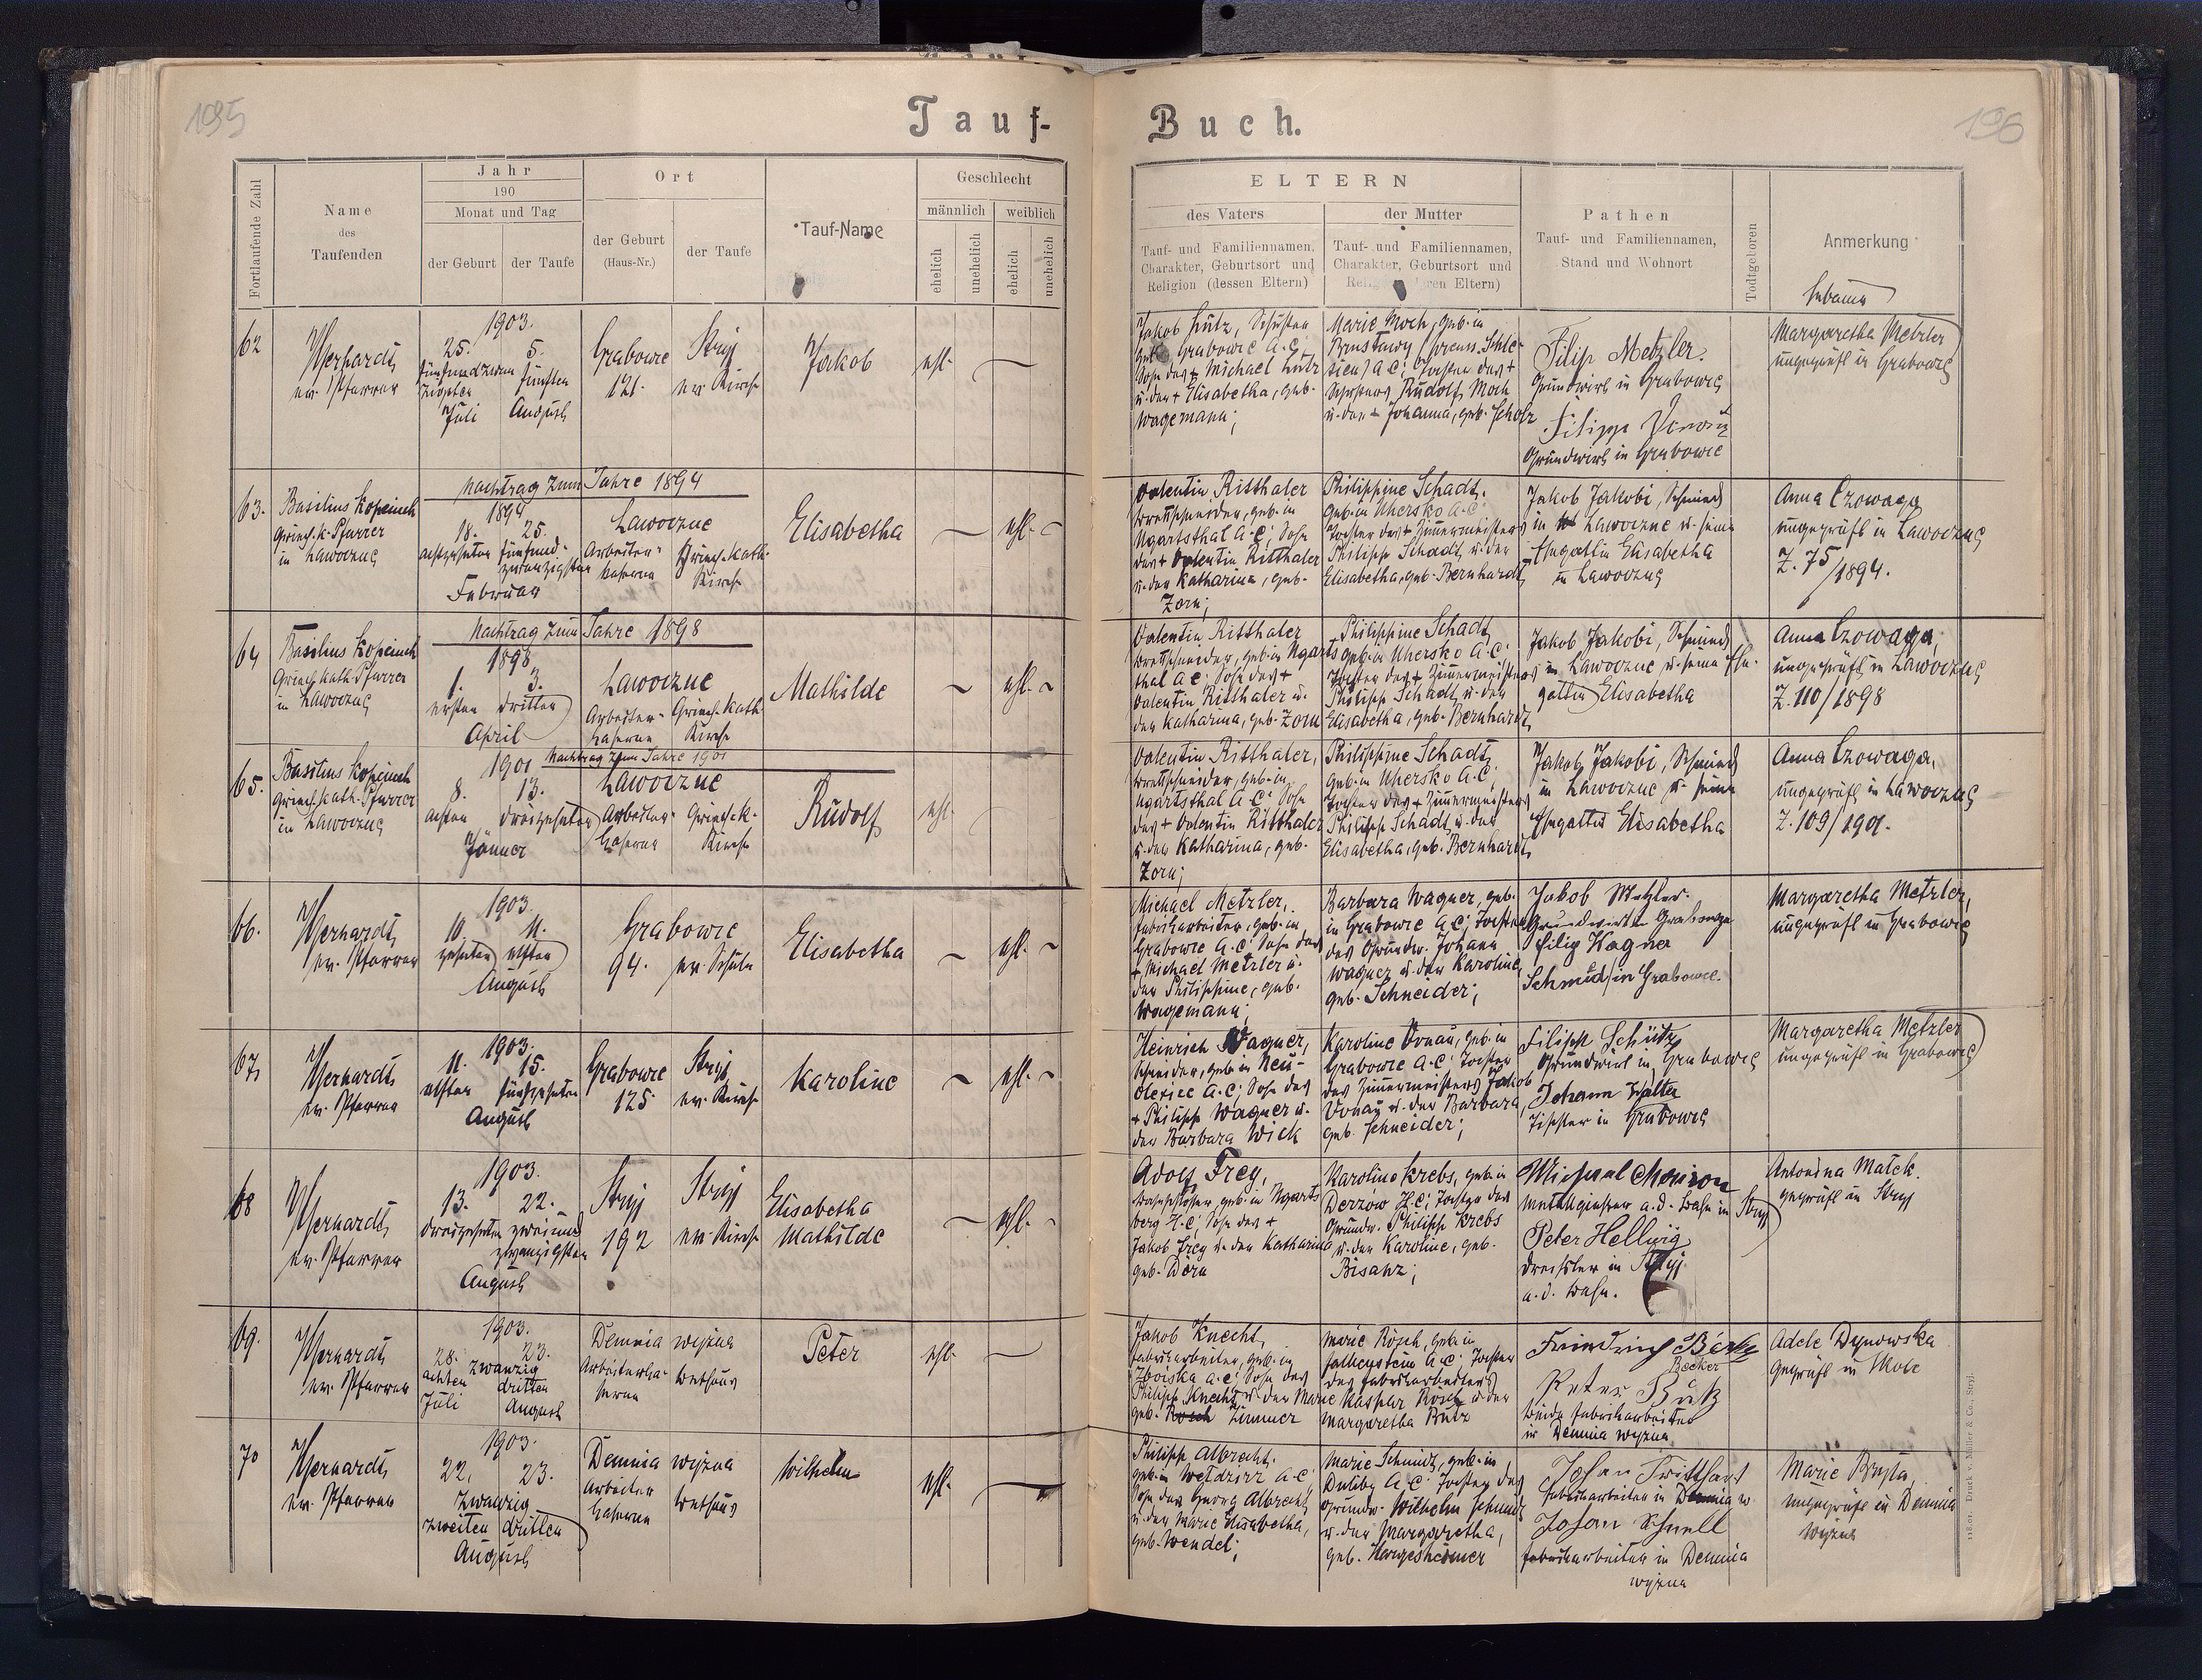 195
Tauf-
Fortlaufende Zahl
Name
des
Taufenden
Jahr
190
Monat und Tag
der Geburt
der Taufe
Ort
der Geburt
(Haus-Nr.)
der Taufe
Tauf-Name
Geschlecht
männlich
weiblich
ehelich
unehelich
ehelich
unehelich
62
ev. Pfarrer
1903.
25.
5.
fünfundzwan
zigsten
fünften
Juli
August
Grabowce
121.
Stryj
ev. Kirche
Jakob
ehl.
63.
Basilius Kopeinch
Griech. k. Pfarrer
in Lawoczne
Nachtrag zum Jahre 1894
1894
18.
25.
achtzehnten
fünfund-
zwanzigsten
Februar
Lawoczne
Arbeiter-
kaserne
Griech. kath.
Kirche
Elisabetha
ehl.
64
Basilius Kopeinch
Griech. kath. Pfarrer
in Lawoczne
Nachtrag zum Jahre 1898
1898
1.
3.
ersten
dritten
April
Lawoczne
Arbeiter-
kaserne
Griech. kath.
Kirche
Mathilde
ehl.
65.
Basilius Kopeinch
Griech. kath. Pfarrer
in Lawoczne
Nachtrag zum Jahre 1901
1901
8.
13.
achten
dreizehnten
Jänner
Lawoczne
Arbeiter-
kaserne
Griech. k.
Kirche
Rudolf
ehl.
66.
ev. Pfarrer
1903.
10.
11.
zehnten
elften
August
Grabowce
94.
ev. Schule
Elisabetha
ehl.
67.
ev. Pfarrer
1903.
11.
15.
elften
fünfzehnten
August
Grabowce
125
Stryj
ev. Kirche
Karoline
ehl.
68
ev. Pfarrer
1903.
13.
22.
dreizehnten
zweiund
zwanzigsten
August
Stryj
192
Stryj
ev. Kirche
Elisabetha
Mathilde
ehl.
69.
ev. Pfarrer
1903.
28.
23.
achten
zwanzig
dritten
Juli
August
Demnia wyżna
Arbeiterka-
serne
Bethaus
Peter
ehl.
70
ev. Pfarrer
1903.
22.
23.
zwanzig
zweiten
dritten
August
Demnia wyżna
Arbeiter
kaserne
Bethaus
Wilhelm
ehl.
Buch.
196
ELTERN
des Vaters
Tauf- und Familiennamen,
Charakter, Geburtsort und
Religion (dessen Eltern)
der Mutter
Tauf- und Familiennamen,
Charakter, Geburtsort und
Pathen
Tauf- und Familiennamen,
Stand und Wohnort
Todtgeboren
Anmerkung
Hebamme
Jakob Lutz, Schuster
Grabowce A.C.
Sohn des + Michael Lutz
u. der + Elisabetha, geb.
Wagemann;
Marie Moch, geb. in
Brustawy (preuss. Schle-
sien) A.C.; Tochter des +
Rudolf Moch
u. der + Johanna, geb. Scholz
Filip Metzler.
Grundwirth in Grabowce
Filipp Vonau
Grundwirth in Grabowce
Margaretha Metzler
ungeprüft in Grabowce
Valentin Ritthaler
Brettschneider, geb. in
Ugartsthal A.C.; Sohn
des + Valentin Ritthaler
u. der Katharina, geb.
Zorn;
Philippine Schadt,
geb. in Uhersko A.C.
Tochter des + Zimmermeisters
Philipp Schadt u. der
Elisabetha, geb. Bernhardt,
Jakob Jakobi, Schmied
in Lawoczne u. seine
Ehegattin Elisabetha
in Lawoczne
Anna Czowaga
ungeprüft in Lawoczne
Z. 75/1894.
Valentin Ritthaler
Brettschneider, geb. in Ugarts
thal A.C. Sohn des +
Valentin Ritthaler u.
der Katharina, geb. Zorn
Philippine Schadt
geb. in Uhersko A.C.
Tochter des + Zimmermeisters
Philipp Schadt u. der
Elisabetha, geb. Bernhardt,
Jakob Jakobi, Schmied
in Lawoczne u. seine Ehe-
gattin Elisabetha
Anna Czowaga,
ungeprüft in Lawoczne
Z. 110/1898
Valentin Ritthaler,
Brettschneider, geb. in
Ugartsthal A.C. Sohn
des + Valentin Ritthaler
u. der Katharina, geb.
Zorn;
Philippine Schadt,
geb. in Uhersko A.C.
Tochter des + Zimmermeisters
Philipp Schadt u. der
Elisabetha, geb. Bernhardt,
Jakob Jakobi, Schmied
in Lawoczne u. seine
Ehegattin Elisabetha
Anna Czowaga,
ungeprüft in Lawoczne
Z. 109/1901.
Michael Metzler,
Fabrikarbeiter, geb. in
Grabowce A.C. Sohn des
+ Michael Metzler u.
der Philippine, geb.
Wagemann;
Barbara Wagner, geb.
in Grabowce A.C.; Tochter
des Grundw. Johann
Wagner u. der Karoline,
geb. Schneider;
Jakob Metzler.
Filip Wagner
Schmid in Grabowce.
Margaretha Metzler,
ungeprüft in Grabowce
Heinrich Wagner,
Schneider, geb. in Neu-
Olexice A.C.; Sohn des
+ Philipp Wagner u.
der Barbara Wick
Karoline Vonau, geb. in
Grabowce A.C. Tochter
des Zimmermeisters Jakob
Vonau u. der Barbara,
geb. Schneider;
Filipp Schütz
Grundwirth in Grabowce
Johann
Tischler in Grabowce
Margaretha Metzler
ungeprüft in Grabowce
Adolf Frey,
geb. in Ugarts
berg H.C.; Sohn des +
Jakob Frey u. der Katharina
geb. Dörn
Karoline Krebs, geb. in
Derzow H.C.; Tochter des
Grundw. Philipp Krebs
u. der Karoline, geb.
Bisanz;
Metallgiesser a.d. Bahn in Stryj
Peter Hellwig
Drechsler in Stryj
a.d. Bahn.
Antonina Matck.
geprüft in Stryj
Jakob Knecht,
Fabrikarbeiter, geb. in
Zboiska A.C. Sohn des
Philipp Knecht u. der Marie
geb. Zimmer
Marie Rösch, geb. in
Falkenstein A.C.; Tochter
des Fabrikarbeiters
Kaspar Rösch u. der
Margaretha Butz
Becker
Peter Butz
beide Fabrikarbeiter
in Demnia wyżna
Adele Dynowska
geprüft in Skole
Philipp Albrecht,
geb. in Weldzirz A.C.
Sohn des Georg Albrecht
u. der Marie Elisabetha,
geb. Wendel;
Marie Schmidt, geb. in
Duliby A.C. Tochter des
Grundw. Wilhelm Schmidt
u. der Margaretha,
geb. Hargesheimer
Johan Tritthart
Fabrikarbeiter in Demnia w.
Johan Schnell
Fabrikarbeiter in Demnia
wyżna
Marie
ungeprüft in Demnia
wyżna
118.01. Druck v. Müller & Co., Stryj.